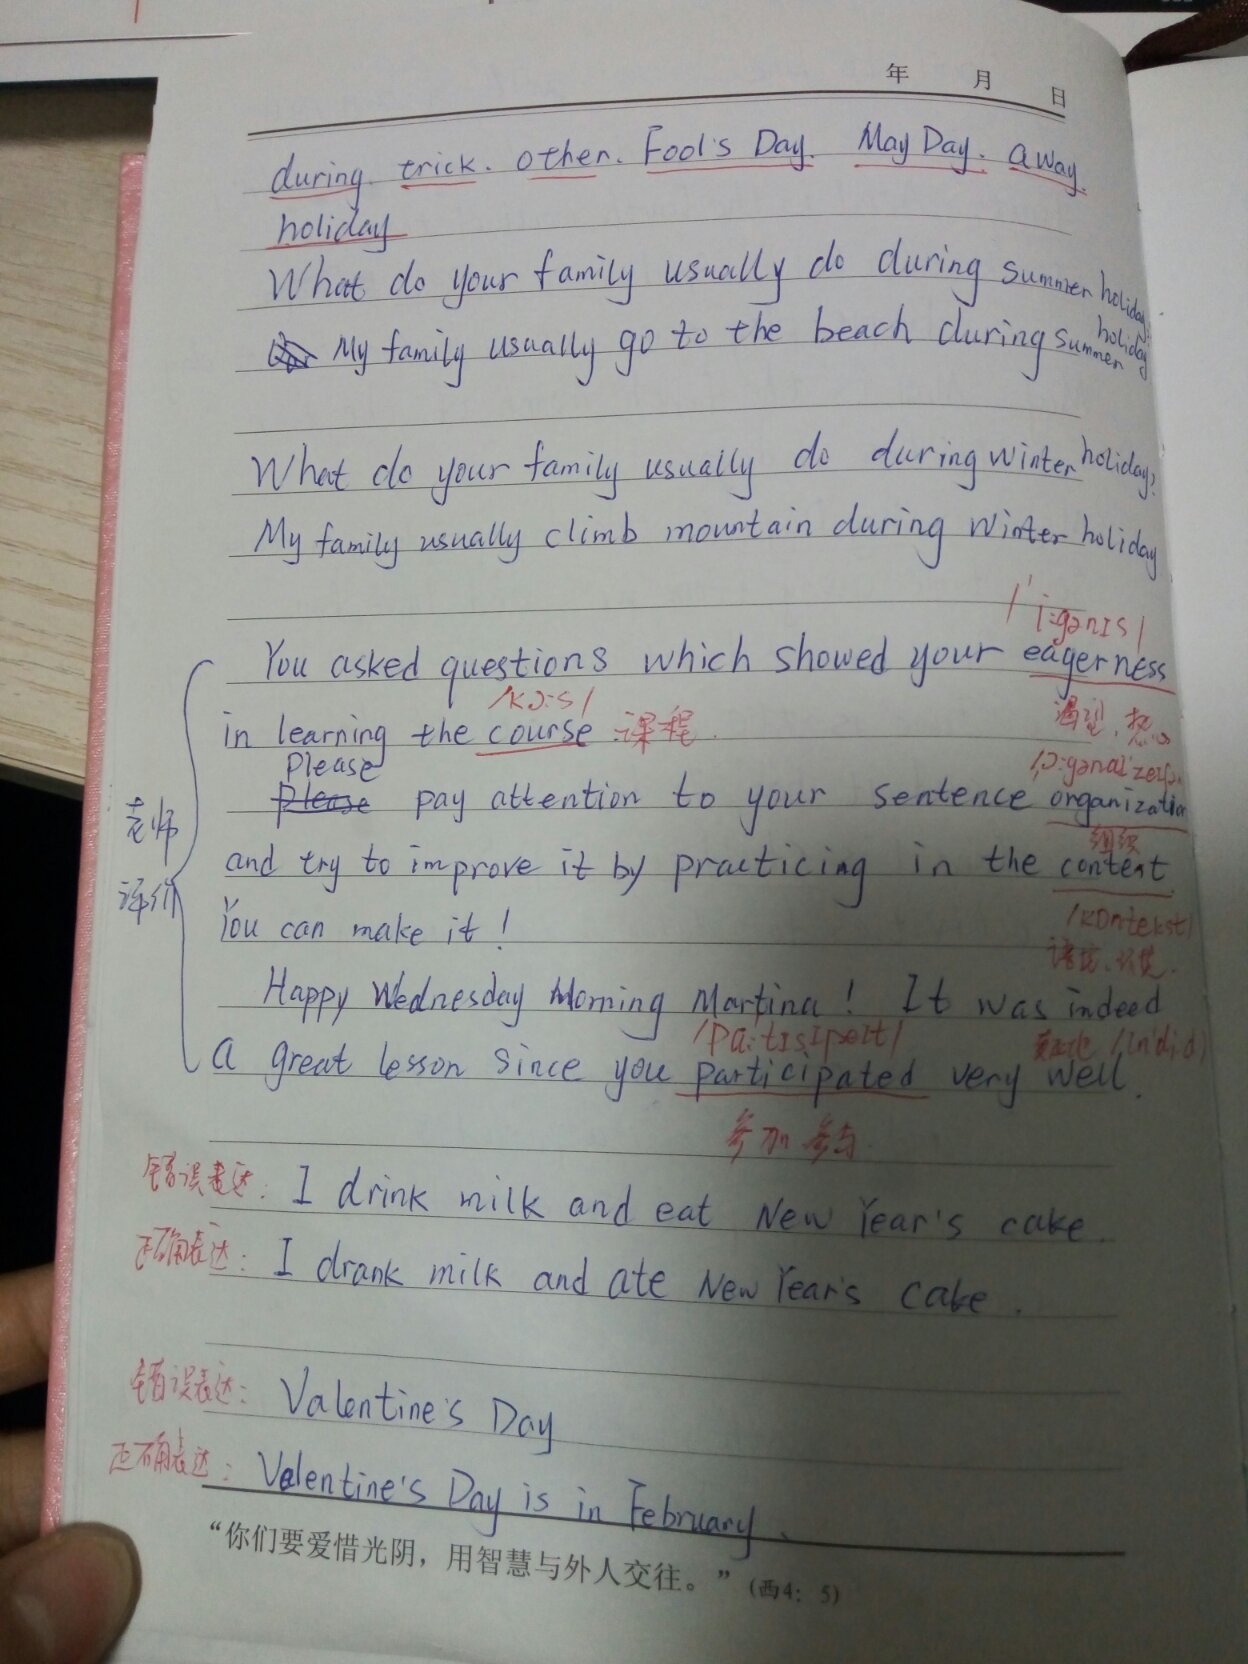 年 月 日
during. trick. other. Fool's Day. May Day. away.
holiday
What do your family usually do during summer holiday?
My family usually go to the beach during summer holiday
What do your family usually do during winter holiday?
My family usually climb mountain during winter holiday
/'i:gənɪs/
You asked questions which showed your eagerness
/kɔ:s/
in learning the course 课程.
渴望、热心
Please
please pay attention to your sentence organization
组织
老师
评价
and try to improve it by practicing in the context
/kɒntekst/
You can make it!
语境、
Happy Wednesday Morning Martina! It was indeed
a great lesson since you participated very well.
参加 参与.
错误表达: I drink milk and eat New Year's cake.
正确表达: I drank milk and ate New Year's cake.
错误表达: Valentine's Day
正确表达: Valentine's Day is in February.
“你们要爱惜光阴，用智慧与外人交往。”(西4：5)